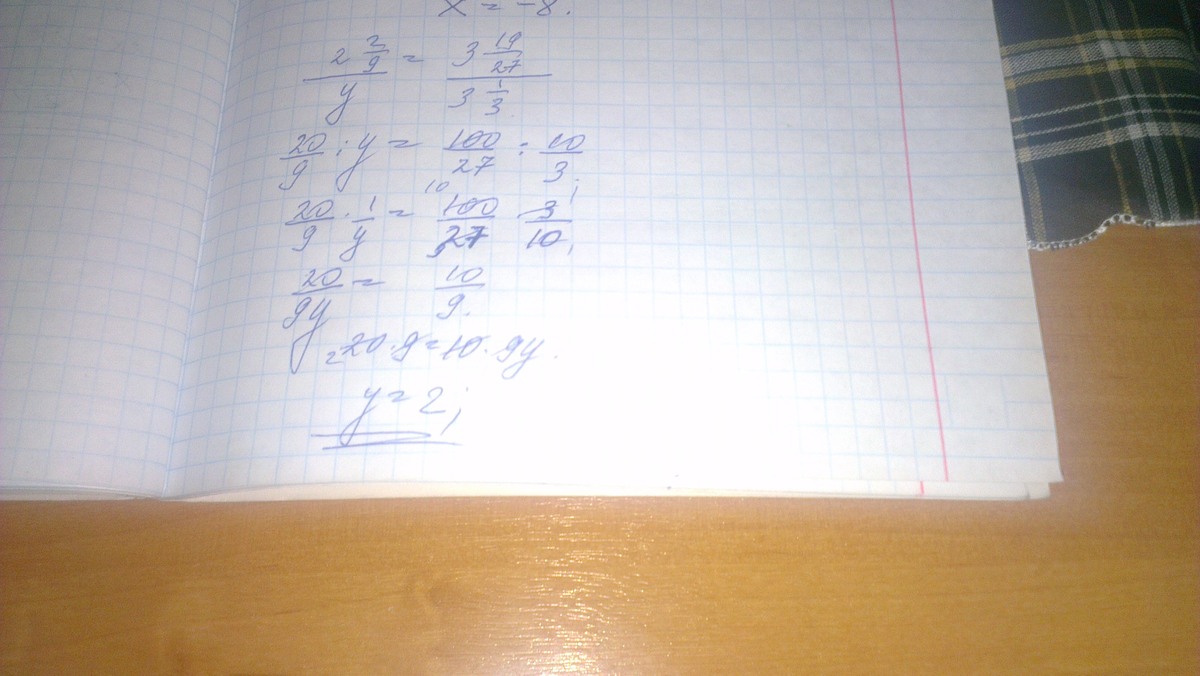 x = -8.
2 2/9 / y = 3 19/27 / 3 1/3
20/9 : y = 100/27 : 10/3;
20/9 · 1/y = 100/27 3/10; 10 9 1
20/9y = 10/9.
= 20·9 = 10·9y.
y = 2;